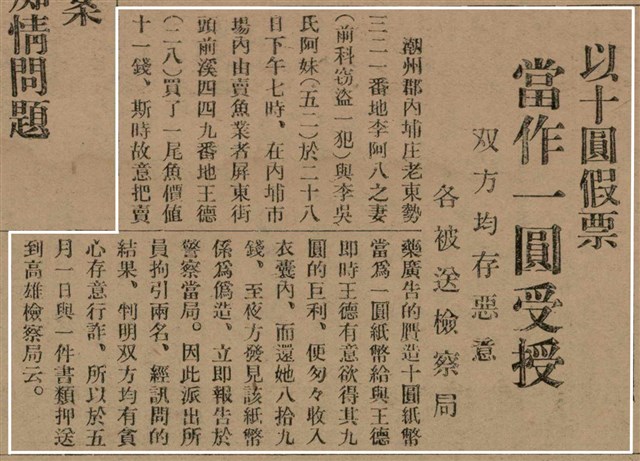 以十圓假票
當作一圓受授
双方均存惡意
各被送檢察局
潮州郡內埔庄老東勢
三二一番地李阿八之妻
(前科窃盜一犯)與李吳
氏阿妹(五二)於二十八
日下午七時、在內埔市
場內由賣魚業者屏東街
頭前溪四四九番地王德
(二八)買了一尾魚價值
十一錢、斯時故意把賣
藥廣告的贋造十圓紙幣
當爲一圓紙幣給與王德
即時王德有意欲得其九
圓的巨利、便匆々收入
衣囊內、而還她八拾九
錢、至夜方發見該紙幣
係爲僞造、立即報告於
警察當局。因此派出所
員拘引兩名、經訊問的
結果、判明双方均有貪
心存意行詐、所以於五
月一日與一件書類押送
到高雄檢察局云。
案
痴情問題